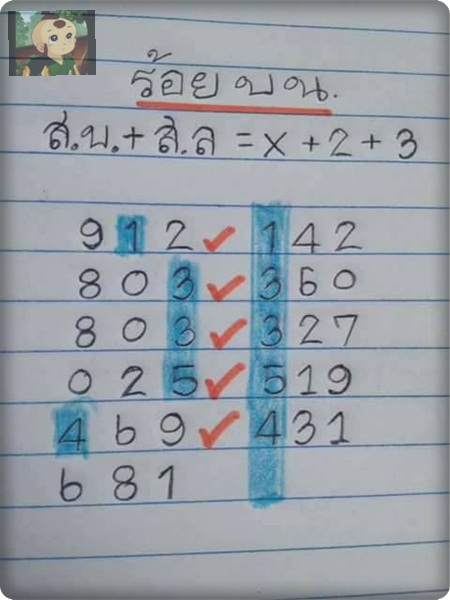 ร้อย บน.
ส.บ.+ส.ล = x + 2 + 3
9 1 2 ✓ 1 4 2
8 0 3 ✓ 3 6 0
8 0 3 ✓ 3 2 7
0 2 5 ✓ 5 1 9
4 6 9 ✓ 4 3 1
6 8 1